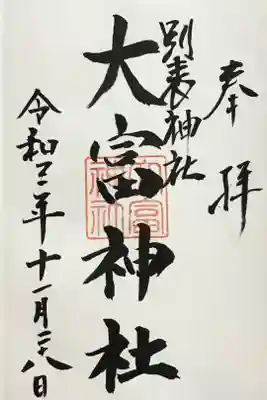 奉拝
別表神社
大富神社
令和三年十一月二十八日